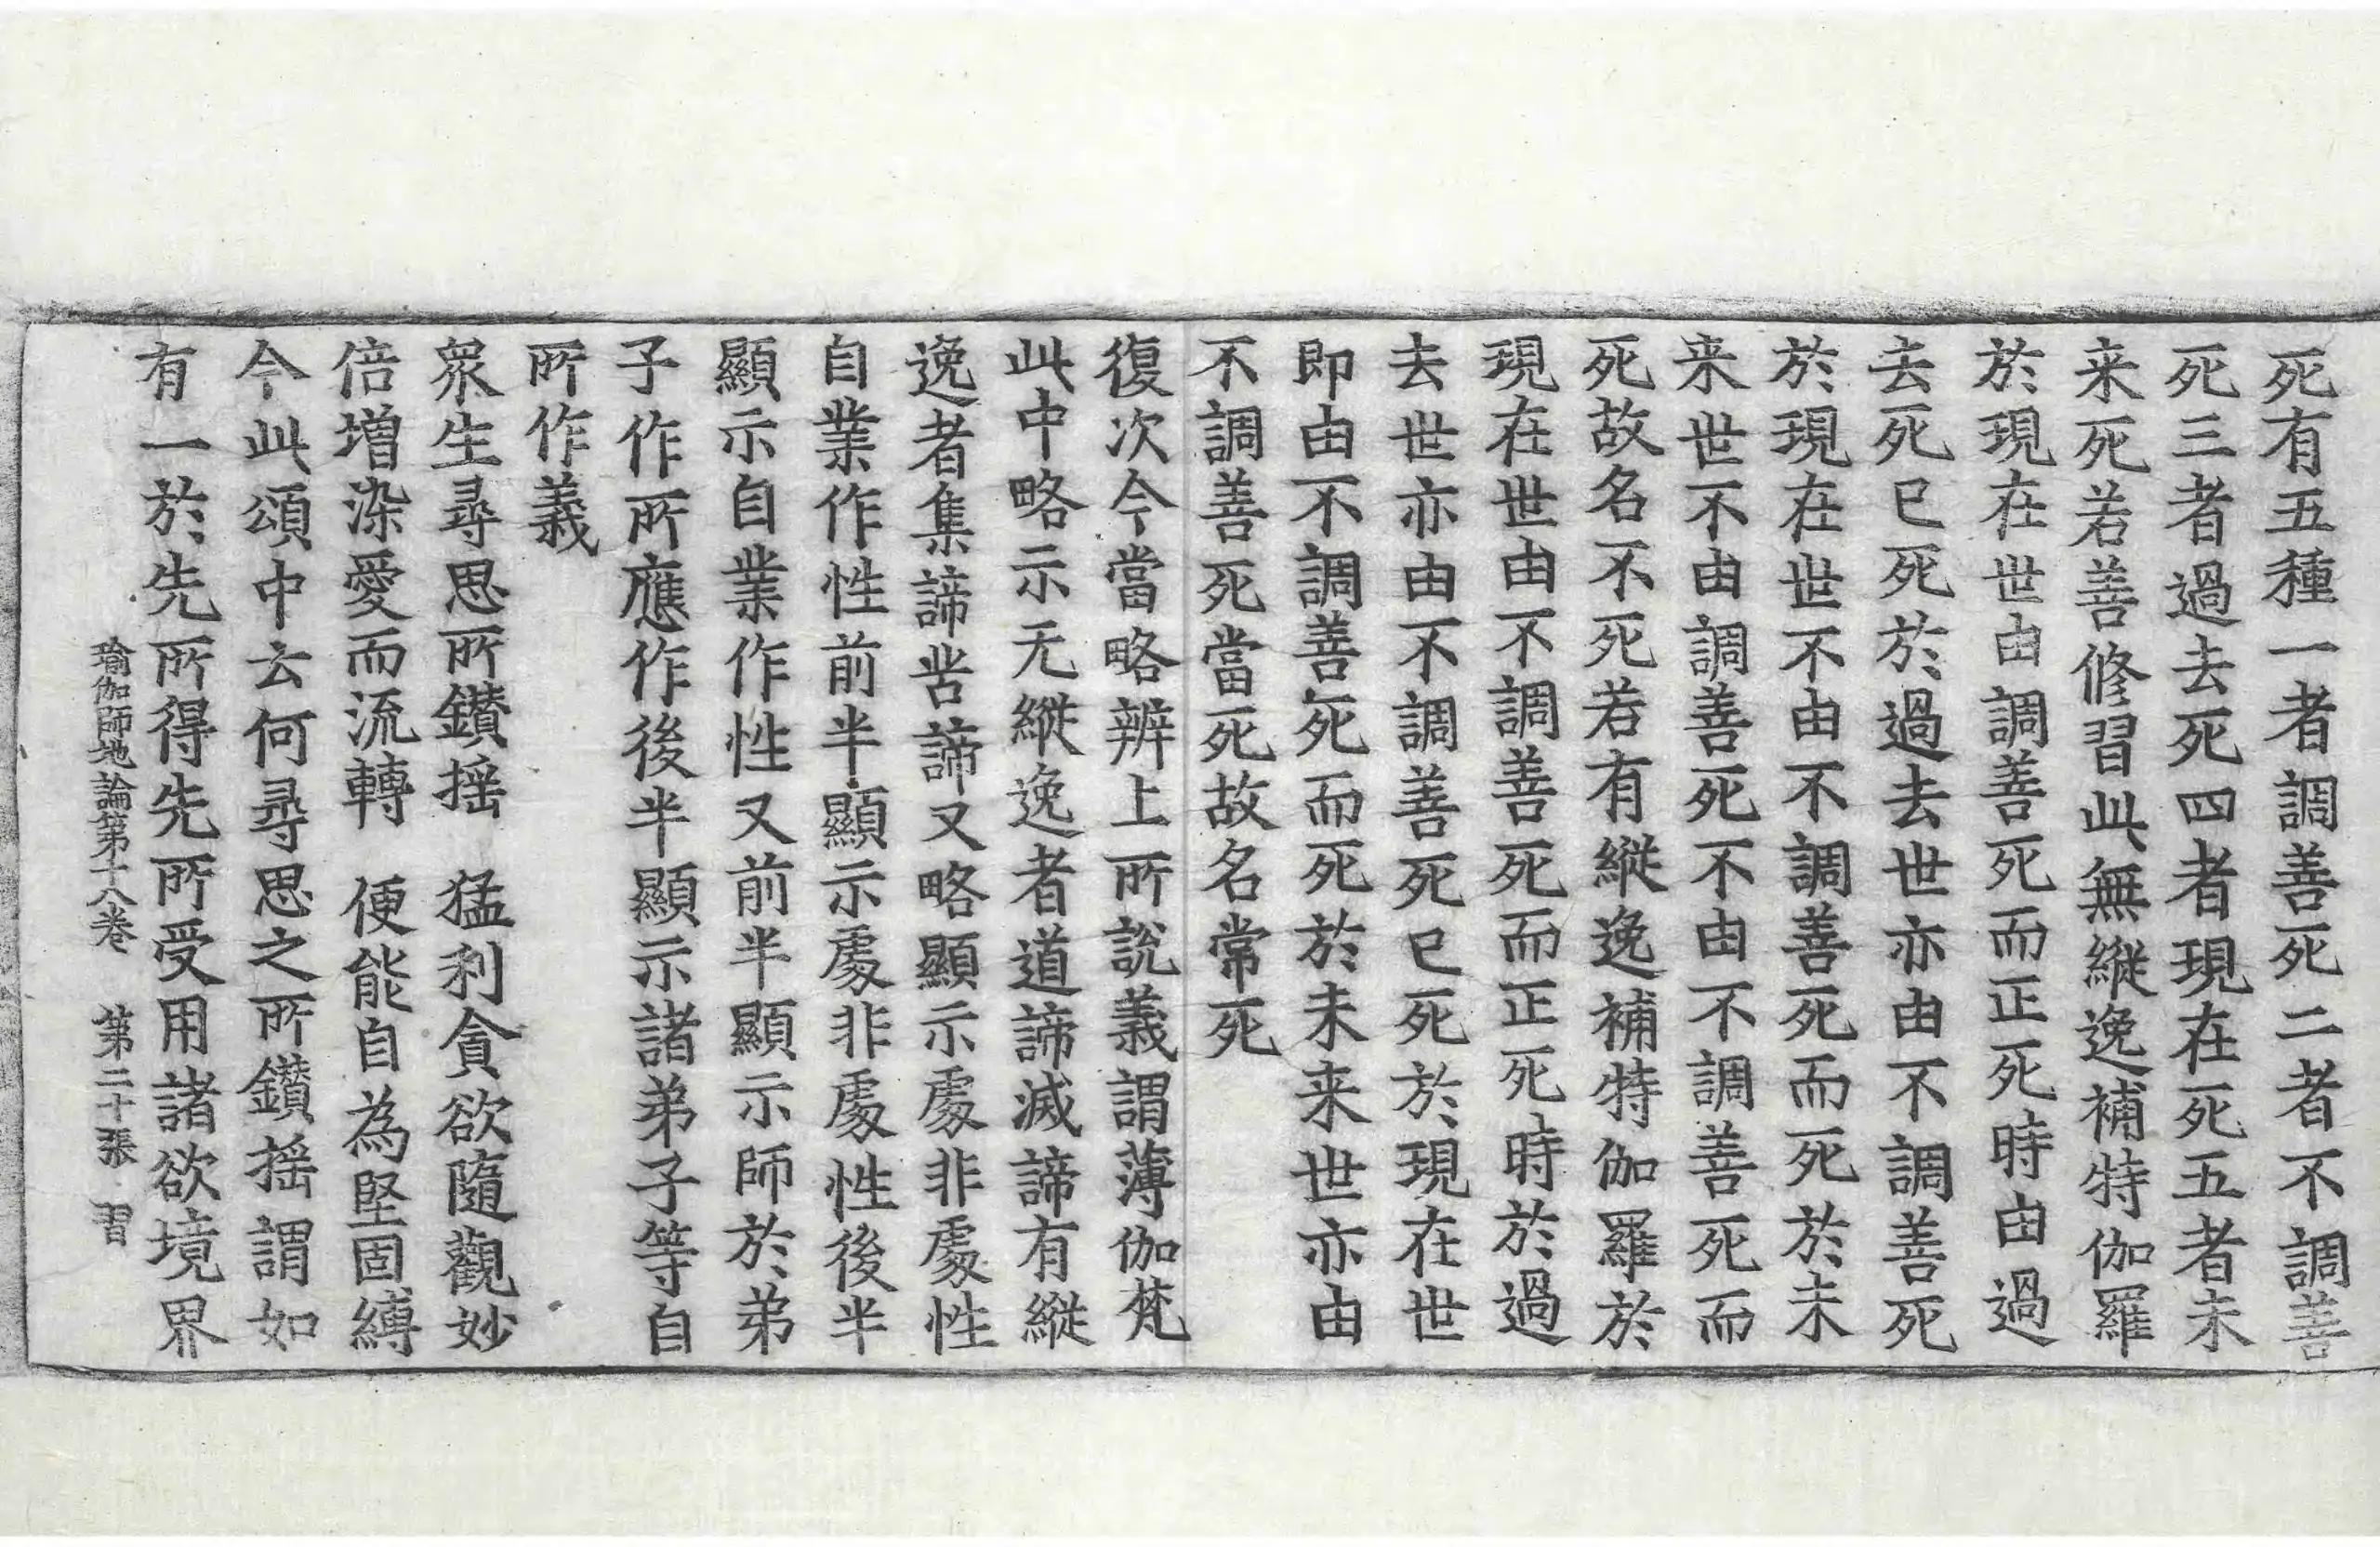 死有五種一者調善死二者不調善
死三者過去死四者現在死五者未
来死若善修習此無縱逸補特伽羅
於現在世由調善死而正死時由過
去死已死於過去世亦由不調善死
於現在世不由不調善死而死於未
来世不由調善死不由不調善死而
死故名不死若有縱逸補特伽羅於
現在世由不調善死而正死時於過
去世亦由不調善死已死於現在世
即由不調善死而死於未来世亦由
不調善死當死故名常死
復次今當略辨上所說義謂薄伽梵
此中略示无縱逸者道諦滅諦有縱
逸者集諦苦諦又略顯示處非處性
自業作性前半顯示處非處性後半
顯示自業作性又前半顯示師於弟
子作所應作後半顯示諸弟子等自
所作義
衆生尋思所鑽揺　猛利貪欲隨觀妙
倍增染愛而流轉　便能自為堅固縛
今此頌中云何尋思之所鑽揺謂如
有一於先所得先所受用諸欲境界
瑜伽師地論第十八卷　第二十張　習